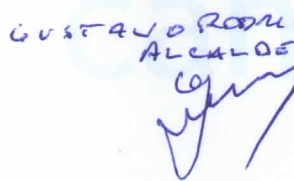 GUSTAVO RODRI
ALCALDE